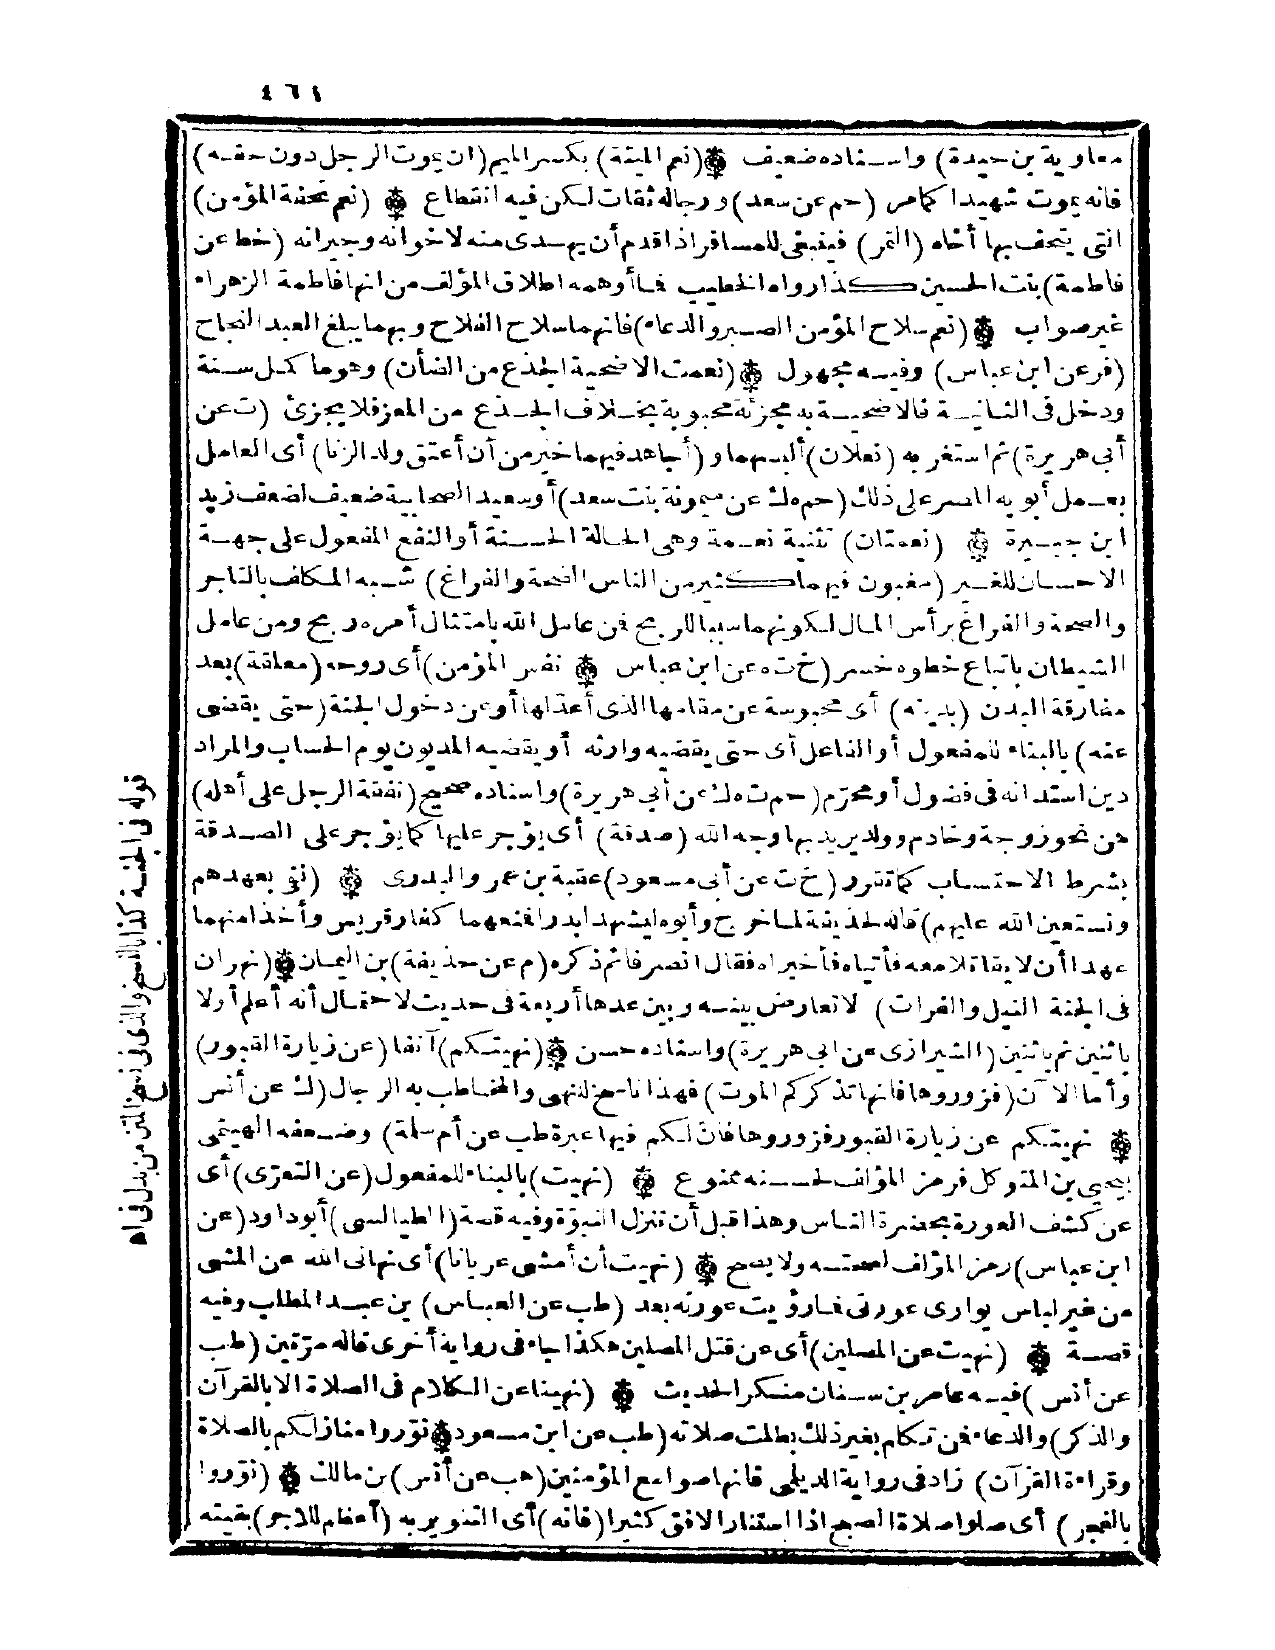 ٤٦١
معاوية بن حيدة) واسناده ضعيف (نعم الميتة) بكسر الميم (ان يموت الرجل دون حقه)
فانه يموت شهيدا كما مر (حم عن سعد) ورجاله ثقات لكن فيه انقطاع (نعم تحفة المؤمن)
التى يتحف بها أخاه (التمر) فينبغى للمسافر اذا قدم أن يهدى منه لاخوانه وجيرانه (خط عن
فاطمة) بنت الحسين كذا رواه الخطيب فما أوهمه اطلاق المؤلف من انها فاطمة الزهراء
غير صواب (نعم سلاح المؤمن الصبر والدعاء) فانهما سلاح الفلاح وبهما يبلغ العبد النجاح
(فر عن ابن عباس) وفيه مجهول (نعمت الاضحية الجذع من الضأن) وهو ما كمل سنة
ودخل فى الثانية فالاضحية به مجزئة محبوبة بخلاف الجذع من المعز فلا يجزئ (ت عن
أبى هريرة) ثم استغربه (نعلان) ألبسهما و (أجاهد فيهما خير من أن أعتق ولد الزنا) أى العامل
بعمل أبويه المصر على ذلك (حم ه ك عن ميمونة بنت سعد) أو سعيد الصحابية ضعيف لضعف زيد
ابن جبيرة (نعمتان) تثنية نعمة وهى الحالة الحسنة أو النفع المفعول على جهة
الاحسان للغير (مغبون فيهما كثير من الناس الصحة والفراغ) شبه المكلف بالتاجر
والصحة والفراغ برأس المال لكونهما سببا للربح فمن عامل الله بامتثال أمره ربح ومن عامل
الشيطان باتباع خطوه خسر (خ ت ه عن ابن عباس نفس المؤمن) أى روحه (معلقة) بعد
مفارقة البدن (بدينه) أى محبوسة عن مقامها الذى أعد لها أو عن دخول الجنة (حتى يقضى
عنه) بالبناء للمفعول أو الفاعل أى حتى يقضيه وارثه أو يقضيه المديون يوم الحساب والمراد
دين استدانه فى فضول أو محرم (حم ت ه ك عن أبى هريرة) واسناده صحيح (نفقة الرجل على أهله)
من نحو زوجة وخادم وولد يريد بها وجه الله (صدقة) أى يؤجر عليها كما يؤجر على الصدقة
بشرط الاحتساب كما تقرر (خ ت عن أبى مسعود) عقبة بن عمرو البدرى (نفى بعهدهم
ونستعين الله عليهم) قاله لحذيفة لما خرج وأبوه ليشهدا بدرا فمنعهما كفار قريش وأخذ منهما
عهدا أن لا يقاتلا معه فأتياه فأخبراه فقال انصرفا ثم ذكره (م عن حذيفة) بن اليمان (نهران
فى الجنة النيل والفرات) لا تعارض بينه وبين عدها أربعة فى حديث لاحتمال أنه أعلم أولا
باثنين ثم باثنين (الشيرازى عن ابى هريرة) واسناده حسن (نهيتكم) آنفا (عن زيارة القبور)
وأما الآن (فزوروها فانها تذكركم الموت) فهذا ناسخ للنهى والمخاطب به الرجال (ك عن أنس
نهيتكم عن زيارة القبور فزوروها فان لكم فيها عبرة طب عن أم سلمة) وضعفه الهيتمى
بيحيى بن المتوكل فرمز المؤلف لحسنه ممنوع (نهيت) بالبناء للمفعول (عن التعرى) أى
عن كشف العورة بحضرة الناس وهذا قبل أن تنزل النبوة وفيه قصة (الطيالسى) أبو داود (عن
ابن عباس) رمز المؤلف لصحته ولا يصح (نهيت أن أمشى عريانا) أى نهانى الله عن المشى
من غير لباس يوارى عورتى فما رؤيت عورته بعد (طب عن العباس) بن عبد المطلب وفيه
قصة (نهيت عن المصلين) أى عن قتل المصلين هكذا جاء فى رواية أخرى قاله مرتين (طب
عن أنس) فيه عامر بن سنان منكر الحديث (نهينا عن الكلام فى الصلاة الا بالقرآن
والذكر) والدعاء فمن تكلم بغير ذلك بطلت صلاته (طب عن ابن مسعود نوروا منازلكم بالصلاة
وقراءة القرآن) زاد فى رواية الديلمى فانها صوامع المؤمنين (هب عن أنس) بن مالك (نوروا
بالفجر) أى صلوا صلاة الصبح اذا استنار الافق كثيرا (فانه) أى التنوير به (أعظم للاجر) بقيته
قوله فى الجنة كذا بالاصح والذى فى نسخ المتن من بدل فى اه